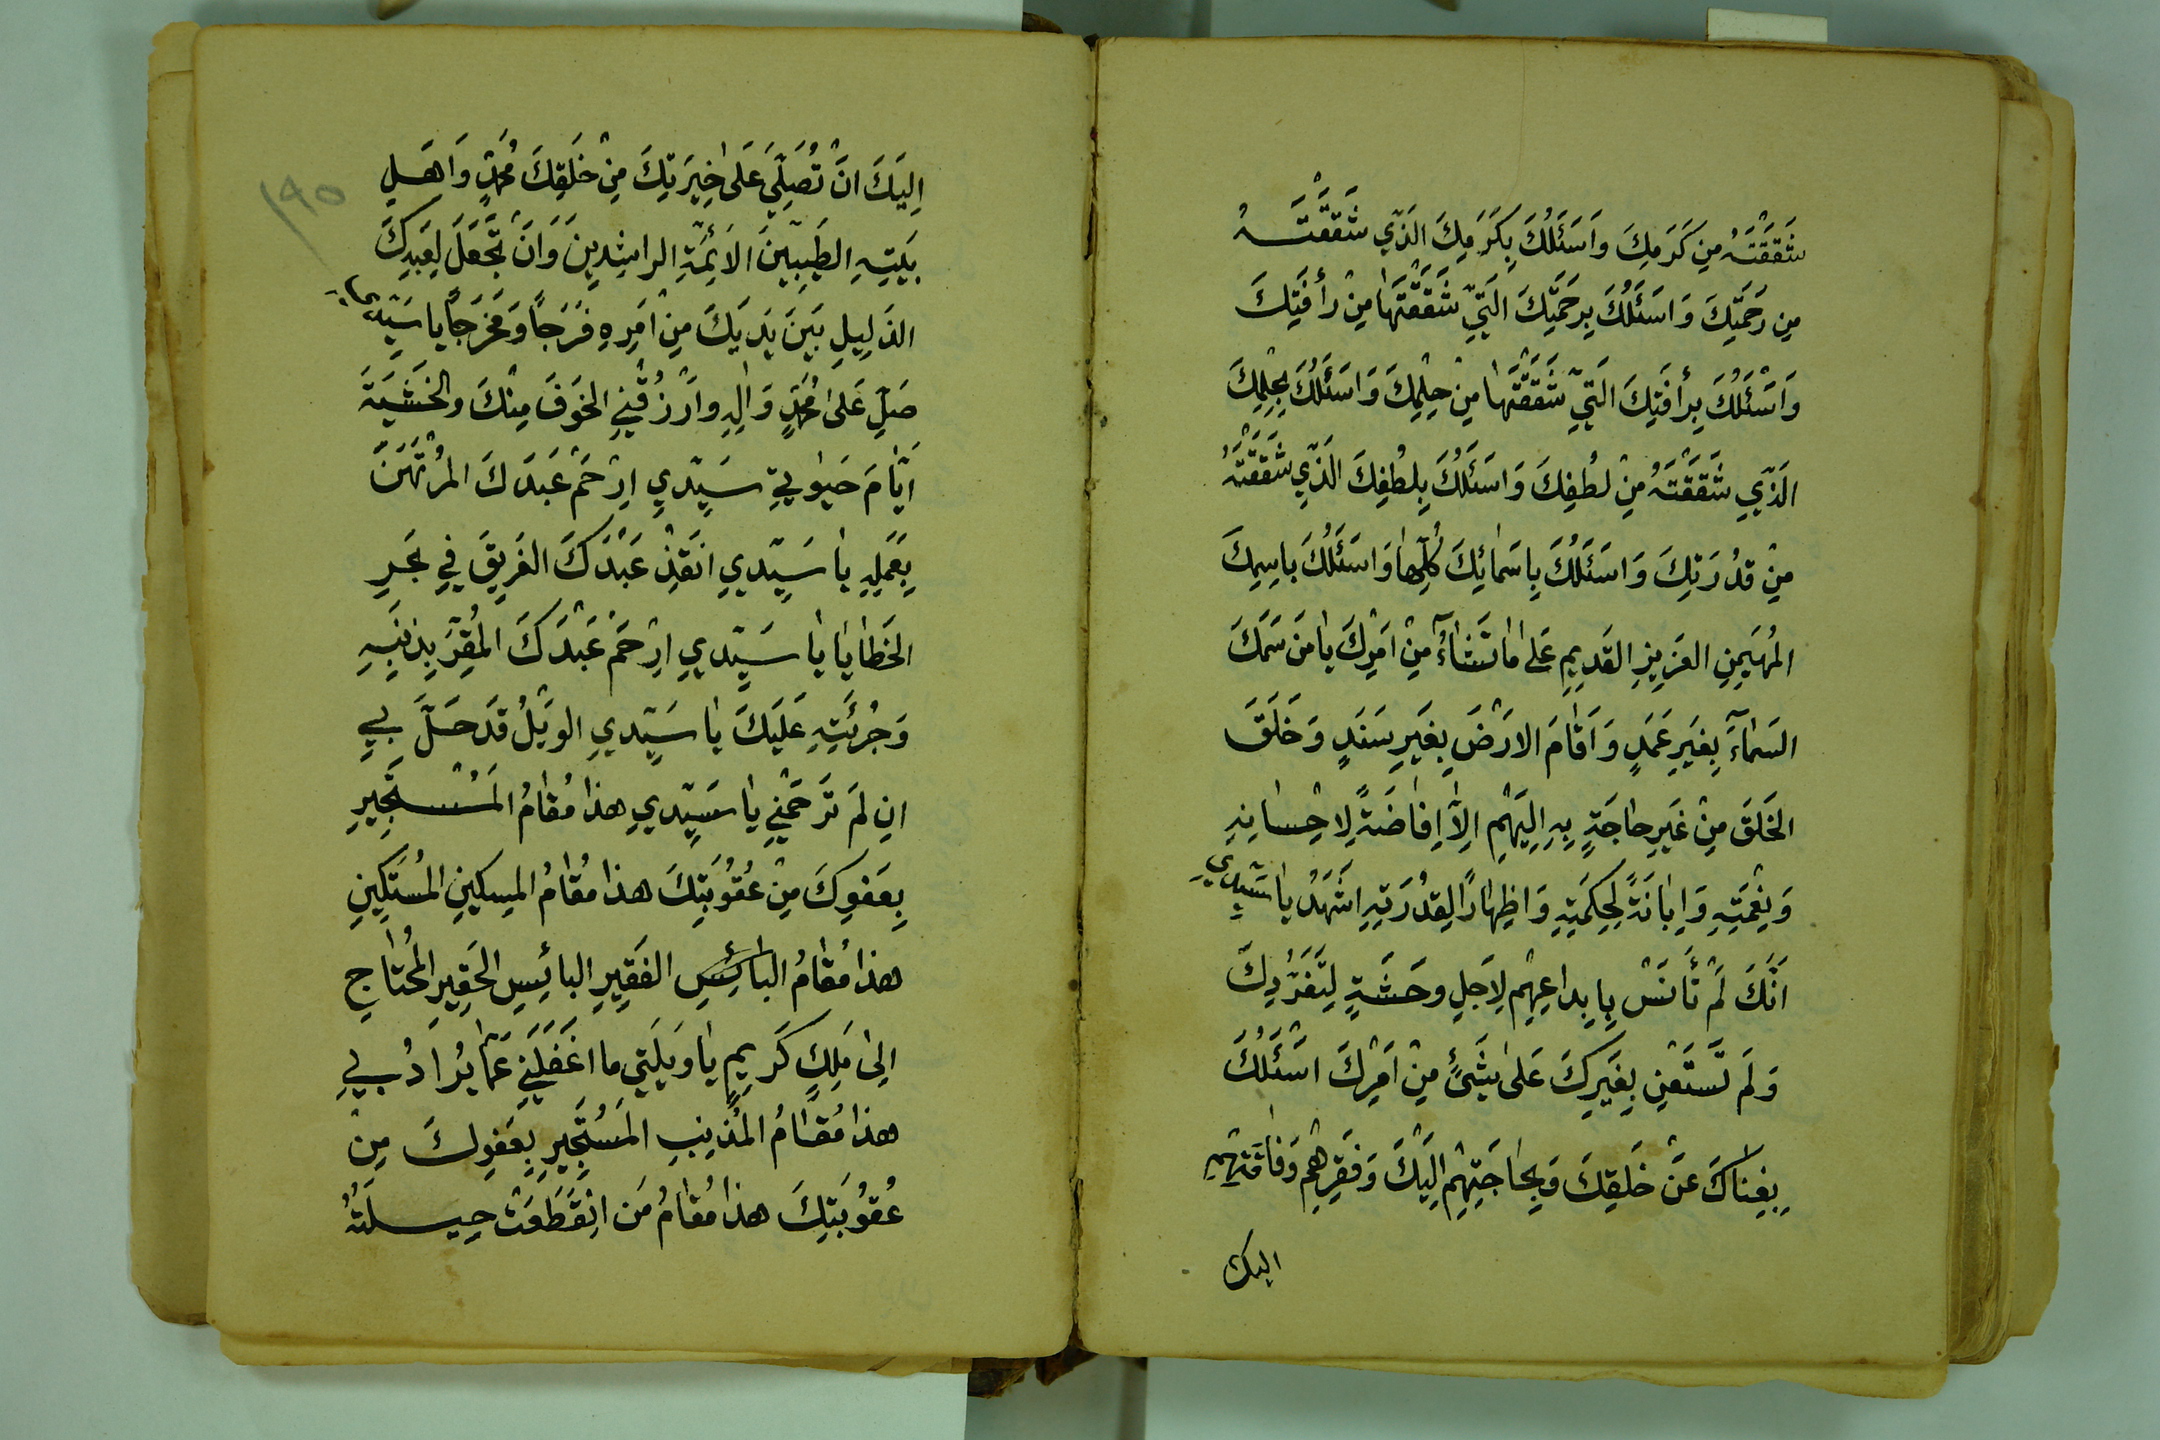 شَقَقْتَهُ مِن كَرَمِكَ وَاَسَئَلُكَ بِكَرَمِكَ الَّذِي شَقَقْتَهُ
مِن رَحمَتِكَ وَاَسَئَلُكَ بِرَحمَتِكَ الَّتِي شَقَقْتَهَا مِنْ رأفَتِكَ
وَاَسْئَلُكَ بِرأفَتِكَ الَّتِي شَقَقْتَهَا مِنْ حِلْمِكَ وَاَسئَلُكَ بِحِلْمِكَ
الَّذِي شَقَقْتَهُ مِنْ لُطْفِكَ وَاَسئَلُكَ بِلُطْفِكَ الَّذِي شَقَقْتَهُ
مِنْ قُدْرَتِكَ وَاَسئَلُكَ بِاَسْمائِكَ كُلِّها وَاَسئَلُكَ بِاسمِكَ
المُهَيمِنِ العَزِيزِ القَدِيمِ عَلىٰ ماتَشاءُ مِنْ اَمْرِكَ يا مَن سَمَكَ
السَماءَ بِغَيرِ عَمَدٍ وَاَقامَ الارَضَ بِغَيرِ سَنَدٍ وَخَلَقَ
الخَلَقَ مِنْ غَيرِ حاجَةٍ بِهِ اِلَيهِم اِلاّ اِفاضَةً لِاحْسانِهِ
وَنِعْمَتِهِ وَاِبانَةً لِحِكمَتِهِ وَاِظهاراً لِقُدْرَتِهِ اَشْهَدُ يا سَيِّدِي
اَنَّكَ لَمْ تَأنَسْ بِاِبداعِهِم لِاَجلِ وحَشَةٍ لِتَفَرُّدِكَ
وَلَم تَستَعِن بِغَيرِكَ عَلىٰ شَئٍ مِنْ اَمْرِكَ اَسْئَلُكَ
بِغِناكَ عَنْ خَلَقِكَ وَبِحاجَتِهِم اِلَيْكَ وَفَقرِهِم وَفاقَتِهِم
اليك
۱۹۰
اِلَيكَ اَنْ تُصَلِّيَ عَلىٰ خِيَرَتِكَ مِنْ خَلَقِكَ مُحَمَّدٍ وَاَهلِ
بَيتِهِ الطَيِّبِينَ الاَئِمَّةِ الراشِدِينَ وَاَنْ تَجْعَلَ لِعَبدِكَ
الذَلِيلِ بَينَ يَدَيكَ مِنْ اَمرِهِ فَرَجاً وَمَخرَجاً يا سَيِّدِي
صَلِّ عَلىٰ مُحَمَّدٍ وَالِهِ وارْزُقْنِي الخَوفَ مِنْكَ والخَشْيَةَ
اَيّامَ حَيوتِي سَيِّدِي اِرْحَمْ عَبدَكَ المُرْتَهَنَ
بِعَمَلِهِ يا سَيِّدِي انَقِذْ عَبْدَكَ الغَرِيقَ فِي بَحرِ
الخَطايا يا سَيِّدِي اِرْحَمْ عَبْدَكَ المُقِرَّ بِذَنبِهِ
وَجُرئَتِهِ عَلَيكَ يا سَيِّدِي الوَيْلُ قَد حَلَّ بِي
اِن لَم تَرحَمْنِي يا سَيِّدِي هذا مُقامُ المُسْتَجِيرِ
بِعَفوِكَ مِنْ عُقُوبَتِكَ هذا مُقامُ المِسكِينِ المُستَكِينِ
هذا مُقامُ البائِسِ الفَقِيرِ البائِسِ الحَقِيرِ المُحْتاجِ
اِلىٰ مَلِكٍ كَرِيمٍ يا وَيلَتِي ما اغَفَلَنِي عَمّا يُرادُ بِي
هذا مُقامُ المُذنِبِ المُستَجِيرِ بِعَفوِكَ مِنْ
عُقُوبَتِكَ هذا مُقامُ مَن انْقَطَعَتْ حِيلَتُهُ